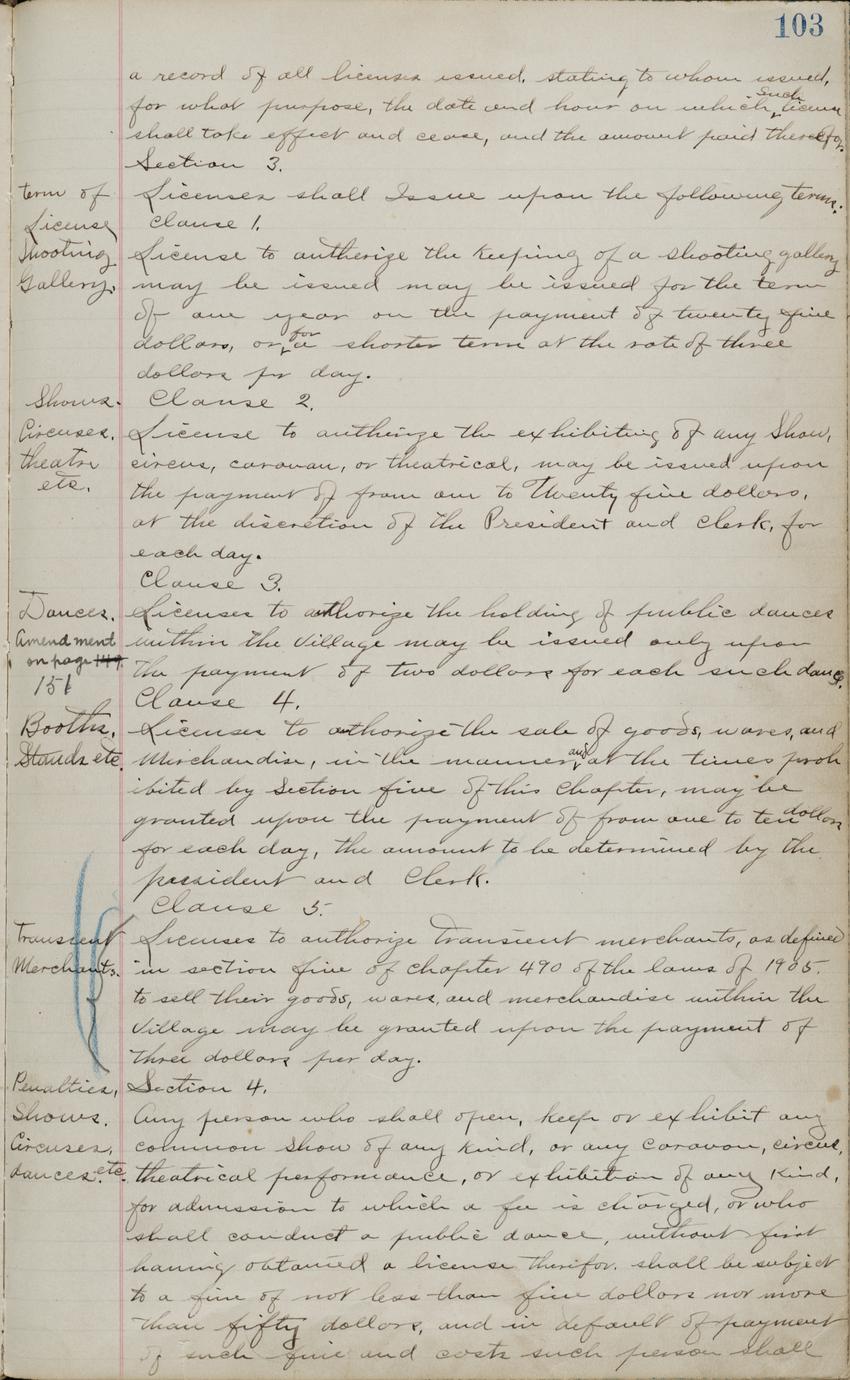 103
a record of all licenses issued, stating to whom issued,
for what purpose, the date and hour on which such license
shall take effect and cease, and the amount paid therefor.
Section 3.
term of Licenses shall Issue upon the following terms.
License Clause 1.
Shooting License to autherize the keeping of a shooting gallery
Gallery. may be issued may be issued for the term
of one year on the payment of twenty five
dollars, or for a shorter term at the rate of three
dollars pr day.
Shows. Clause 2.
Circuses. License to authirize the exhibiting of any Show,
theatre circus, caravan, or theatrical, may be issued upon
etc. the payment of from one to Twenty five dollars,
at the discretion of the President and Clerk, for
each day.
Clause 3.
Dances. Licenses to authorize the holding of public dances
Amendment within the Village may be issued only upon
on page 149. the payment of two dollars for each such dance.
151 Clause 4.
Booths, Licenses to authorize the sale of goods, wares, and
Stands etc. Merchandise, in the manner, and at the times proh
ibited by Section five of this Chapter, may be
granted upon the payment of from one to ten dollars
for each day, the amount to be determined by the
president and Clerk.
Clause 5.
Transient Licenses to authorize Transient merchants, as defined
Merchants. in section five of chapter 490 of the laws of 1905.
to sell their goods, wares, and merchandise within the
Village may be granted upon the payment of
three dollars per day.
Penalties, Section 4.
Shows. Any person who shall open, keep or exhibit any
Circuses, common show of any kind, or any caravan, circus,
dances. etc. theatrical performance, or exhibition of any kind,
for admission to which a fee is charged, or who
shall conduct a public dance, without first
having obtained a license therifor. shall be subject
to a fine of not less than five dollars nor more
than fifty dollars, and in default of payment
of such fine and costs such person shall